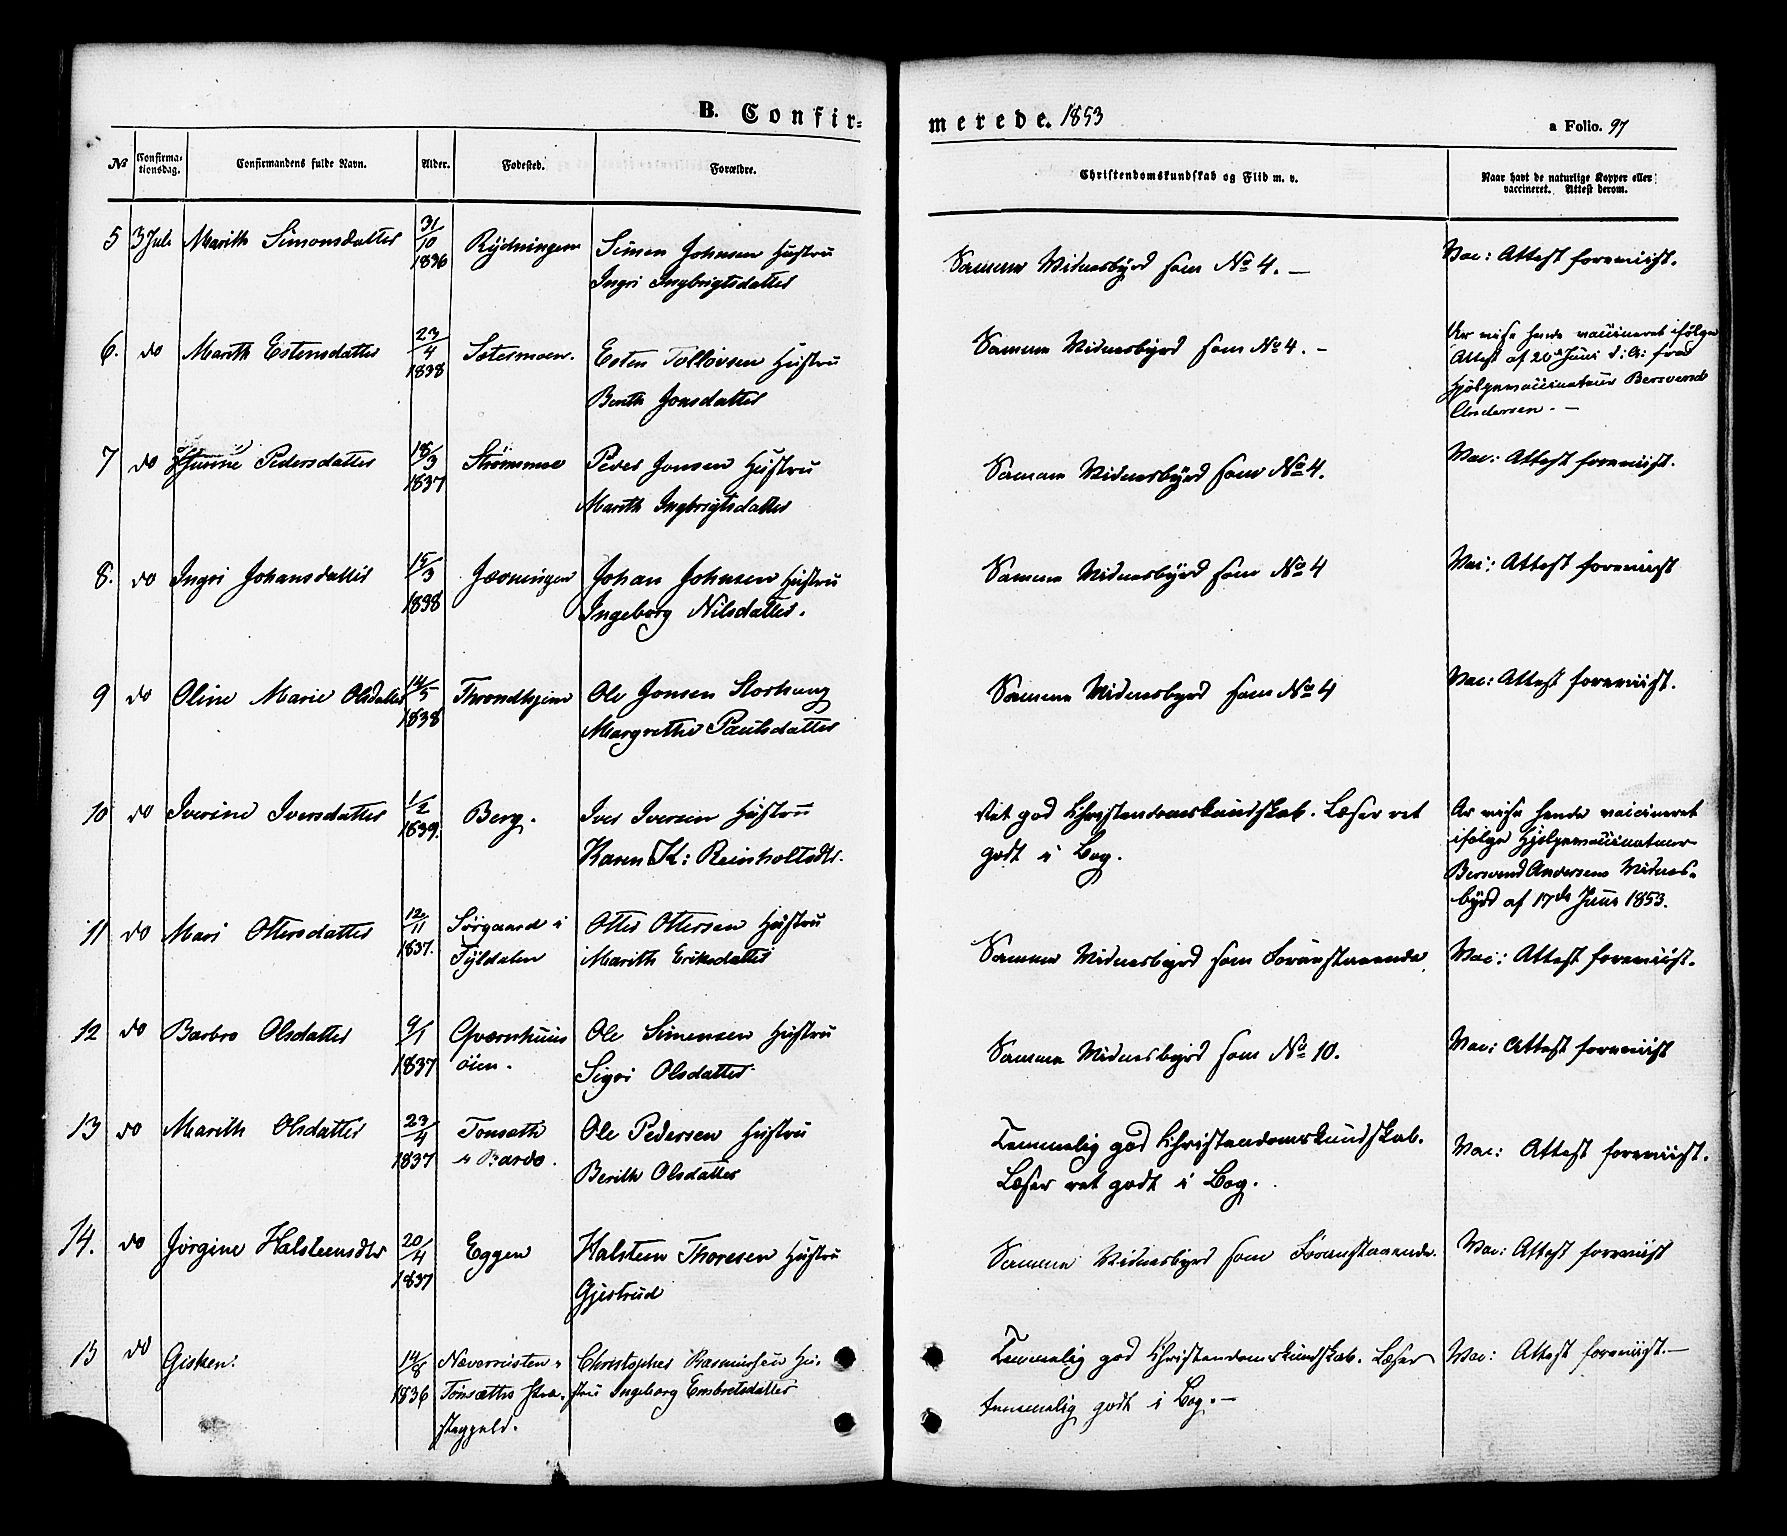 B. Confirmerede. 1853
a Folio. 97
No Confirmationsdag. Confirmandens fulde Navn. Alder. Fødested. Forældre. Christendomskundskab og Flid m. v. Naar havt de naturlige Kopper eller vaccineret. Attest derom.
5 3 Juli Marith Simonsdatter 31/10 1836 Rydningen Simen Johnsen Hustru
Ingri Ingbrigtsdatter
Samme Vidnesbyrd som No 4. —
Vac: Attest foreviist.
6. do Marith Estensdatter 23/4 1838 Sætermoen. Esten Tolløvsen Hustru
Berith Jonsdatter
Samme Vidnesbyrd som No 4. —
Er vise hende vaccineret ifølge
Attest af 20de Juni d: A: fra
Hjelpevaccinateur Bersvend
Andersen. —
7 do Pedersdatter 18/3 1837 Strømmene Peder Jonsen Hustru
Marith Ingbrigtsdatter
Samme Vidnesbyrd som No 4.
Vac: Attest foreviist.
8. do Ingri Johansdatter 15/3 1838 Jævningen Johan Johnsen Hustru
Ingeborg Nilsdatter.
Samme Vidnesbyrd som No 4
Vac: Attest foreviist
9 do Oline Marie Olsdatter 14/5 1838 Throndhjem Ole Jonsen Storhaug
Margrethe Paulsdatter
Samme Vidnesbyrd som No 4
Vac: Attest foreviist.
10 do Iverine Iversdatter 1/2 1839. Berg. Iver Iversen Hustru
Karen K: Reinholtsdtr.
Ret god Christendomskundskab. Læser ret
godt i Bog.
Er vise hende vaccineret
ifølge Hjelpevaccinateur
Bersvend Andersens Vidnes-
byrd af 17de Juni 1853.
11 do Mari Ottersdatter 12/11 1837. Sørgaard i
Tyldalen
Otter Ottersen Hustru
Marith Eriksdatter
Samme Vidnesbyrd som Foranstaaende
Vac: Attest foreviist.
12 do Barbro Olsdatter 9/1 1837 Qværnhuus
öien.
Ole Simensen Hustru
Sigri Olsdatter
Samme Vidnesbyrd som No 10.
Vac: Attest foreviist
13 do Marith Olsdatter 23/4 1837 Tonsæth
i Bardo.
Ole Pedersen Hustru
Berith Olsdatter
Temmelig god Christendomskundskab.
Læser ret godt i Bog.
Vac: Attest foreviist.
14. do Jørgine Halsteensdtr 20/4 1837 Eggen Halsteen Thoresen Hustru
Gjertrud
Samme Vidnesbyrd som Foranstaaende.
Vac: Attest foreviist
15 do Gisken. 14/8 1836 Næverriisten i
Tønsæths Præ-
stegjeld.
Christopher Rasmussen Hu-
stru Ingeborg Embretsdatter
Temmelig god Christendomskundskab. Læser
temmelig godt i Bog. —
Vac: Attest foreviist. —